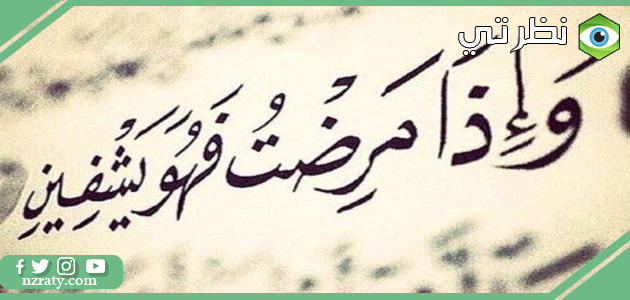 نظرتي
وَإِذَا مَرِضْتُ فَهُوَ يَشْفِينِ
nzraty.com